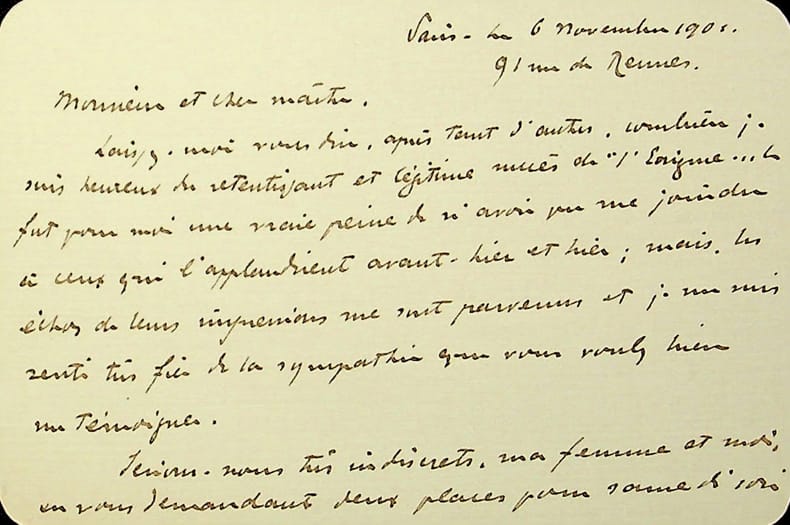 Paris - le 6 novembre 1901.
91 rue de Rennes.
Monsieur et cher maître,
Laissez-moi vous dire, après tant d'autres, combien je
suis heureux du retentissant et légitime succès de "l'Enigme"... Ce
fut pour moi une vraie peine de n'avoir pu me joindre
à ceux qui l'applaudirent avant-hier et hier ; mais, les
échos de leurs impressions me sont parvenus et je me suis
senti très fier de la sympathie que vous voulez bien
me témoigner.
Serions-nous très indiscrets, ma femme et moi,
en vous demandant deux places pour samedi soir